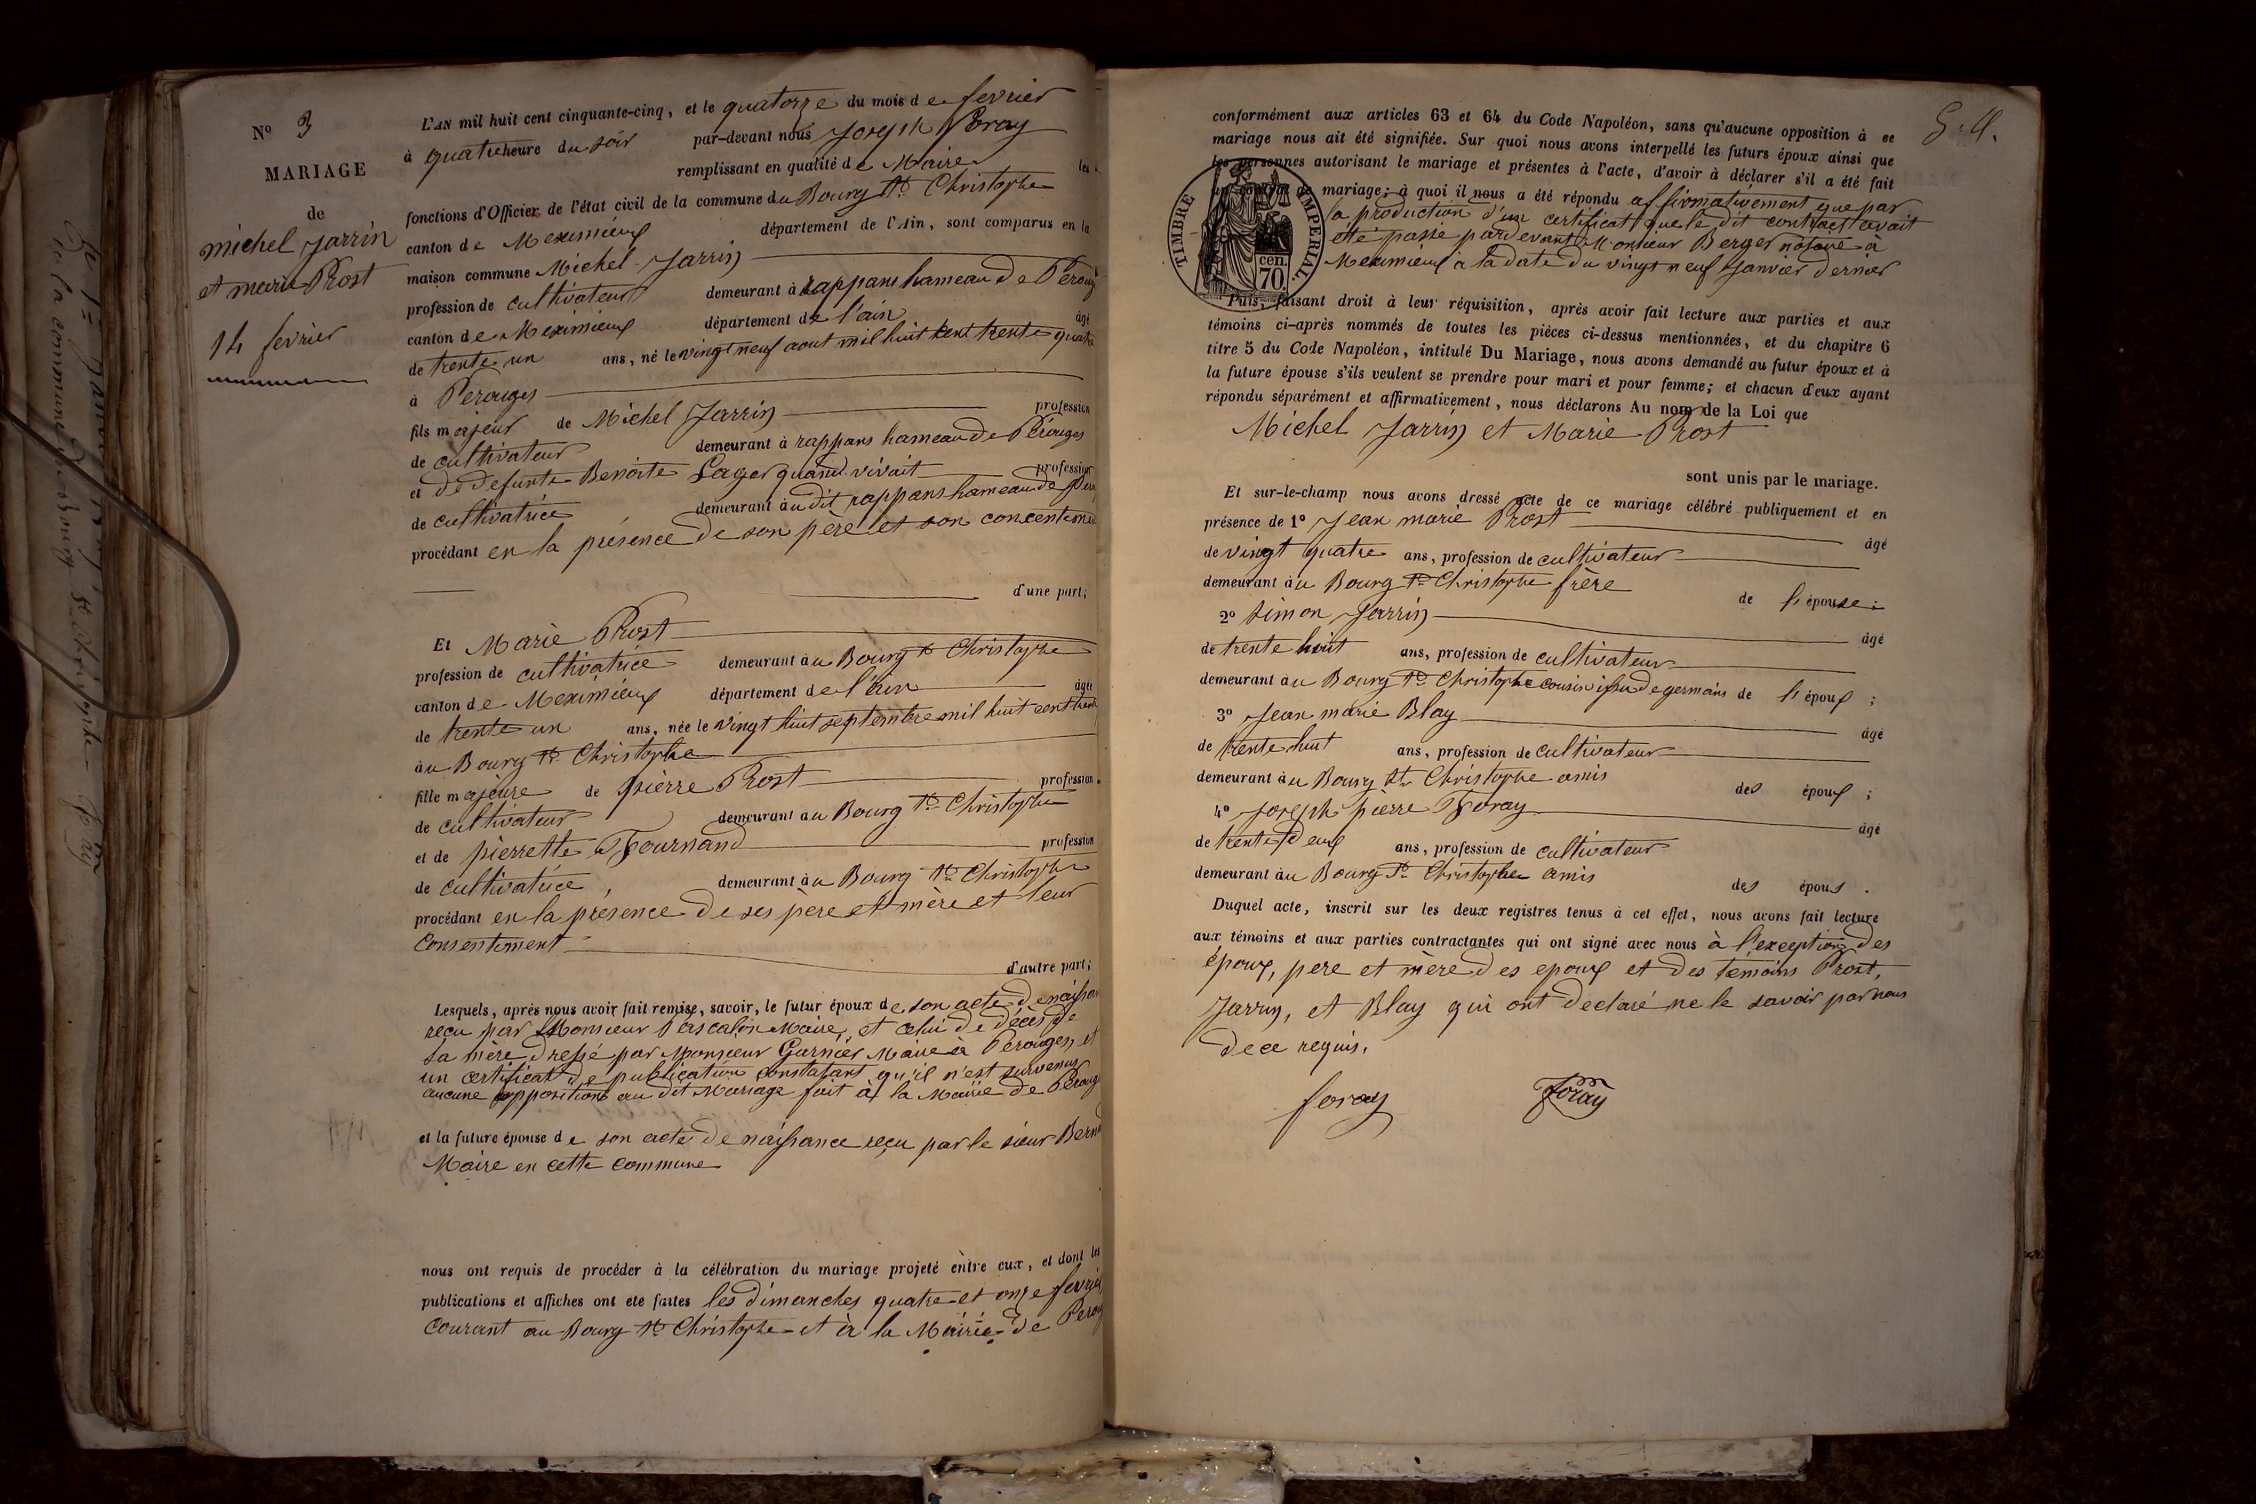 N° 3
MARIAGE
de
michel Jarrin
et marie Prost
14 fevrier
L'AN mil huit cent cinquante-cinq, et le quatorze du mois de fevrier
à quatre heure du soir par-devant nous Joseph Foray
remplissant en qualité de Maire les
fonctions d'Officier de l'état civil de la commune du Bourg St Christophe
canton de Meximieux département de l'Ain, sont comparus en la
maison commune Michel Jarrin
profession de cultivateur demeurant à rappans hameau de Peroug
canton de Meximieux département de l'ain âgé
de trente un ans, né le vingt neuf aout mil huit cent trente quatre
à Perouges
fils majeur de Michel Jarrin profession
de cultivateur demeurant à rappans hameau de Pérouges
et de defunte Benoite Lager quand vivait profession
de cultivatrice demeurant au dit rappans hameau de Per
procédant en la présence de son père et son concenteme
d'une part;
Et Marie Prost
profession de cultivatrice demeurant au Bourg St Christophe
canton de Meximieux département de l'ain âgée
de trente un ans, née le vingt huit septembre mil huit cent
au Bourg St Christophe
fille majeure de pierre Prost profession
de cultivateur demeurant au Bourg St Christophe
et de pierrette Fournand profession
de cultivatrice, demeurant au Bourg St Christophe
procédant en la présence de ses père et mère et leur
Consentement
d'autre part;
Lesquels, après nous avoir fait remise, savoir, le futur époux de son acte de naissan
reçu par Monsieur Pascalin Maire, et celui de décès de
sa mère dressé par Monsieur Garnier Maire à Perouges, et
un certificat de publication constatant qu'il n'est survenus
aucune opposition au dit Mariage fait à la Mairie de Peroug
et la future épouse de son acte de naissance reçu par le sieur Bern
Maire en cette commune
nous ont requis de procéder à la célébration du mariage projeté entre eux, et dont les
publications et affiches ont été faites les dimanches quatre et onze fevrier
Courant au Bourg St Christophe et à la Mairie de Peroug
conformément aux articles 63 et 64 du Code Napoléon, sans qu'aucune opposition à ce
mariage nous ait été signifiée. Sur quoi nous avons interpellé les futurs époux ainsi que
les personnes autorisant le mariage et présentes à l'acte, d'avoir à déclarer s'il a été fait
un contrat de mariage; à quoi il nous a été répondu affirmativement que par
la production d'un certificat que le dit contract avait
etté passé pardevant Monsieur Berger notaire à
Meximieux à la date du vingt neuf Janvier dernier
TIMBRE IMPERIAL.
cen.
70.
Puis, faisant droit à leur réquisition, après avoir fait lecture aux parties et aux
témoins ci-après nommés de toutes les pièces ci-dessus mentionnées, et du chapitre 6
titre 5 du Code Napoléon, intitulé Du Mariage, nous avons demandé au futur époux et à
la future épouse s'ils veulent se prendre pour mari et pour femme; et chacun d'eux ayant
répondu séparément et affirmativement, nous déclarons Au nom de la Loi que
Michel Jarrin et Marie Prost
sont unis par le mariage.
Et sur-le-champ nous avons dressé acte de ce mariage célébré publiquement et en
présence de 1° Jean marie Prost âgé
de vingt quatre ans, profession de cultivateur
demeurant au Bourg St Christophe frère de l'épouse;
2° Simon Jarrin âgé
de trente huit ans, profession de cultivateur
demeurant au Bourg St Christophe cousin issu de germains de l'époux;
3° Jean marie Blay âgé
de trente huit ans, profession de cultivateur
demeurant au Bourg St Christophe amis des époux;
4° Joseph pierre Foray âgé
de trente deux ans, profession de cultivateur
demeurant au Bourg St Christophe amis des époux.
Duquel acte, inscrit sur les deux registres tenus à cet effet, nous avons fait lecture
aux témoins et aux parties contractantes qui ont signé avec nous à l'exception des
époux, pere et mère des epoux et des témoins Prost,
Jarrin, et Blay qui ont declaré ne le savoir par nous
de ce requis.
foray Foray